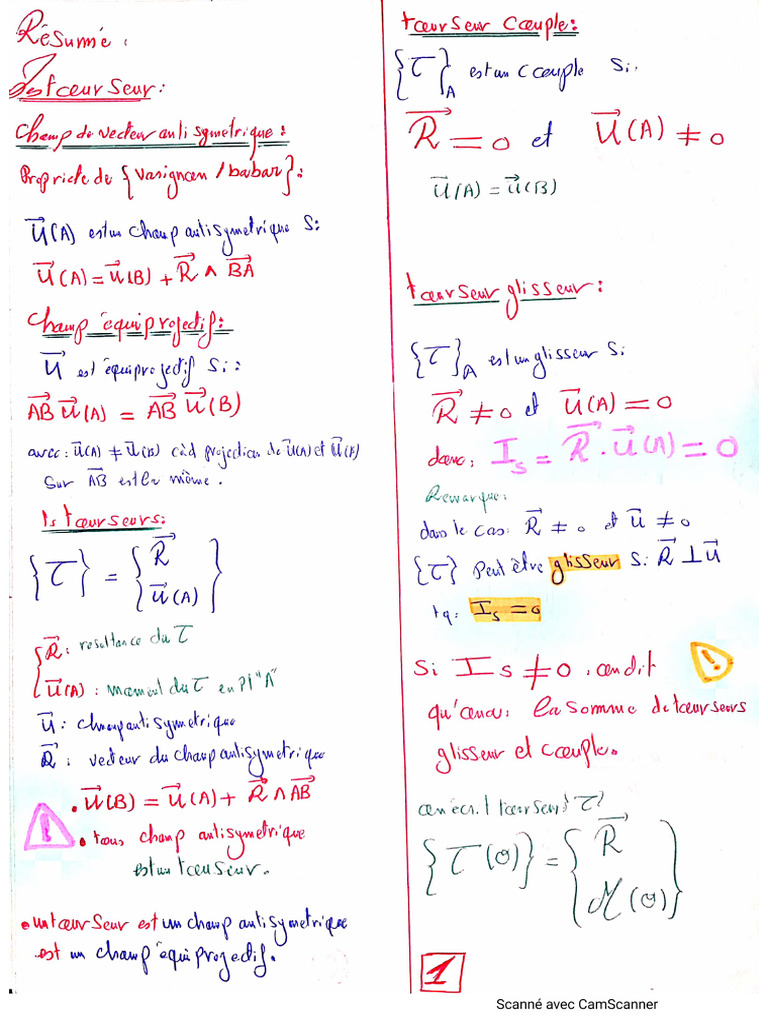 Résumé :
Les toeurseur :
Champ de vecteur antisymetrique :
Propriete de {varignon / babar} :
U⃗(A) est un champ antisymetrique Si
U⃗(A) = U⃗(B) + R⃗ ∧ BA⃗
Champ équiprojectif :
U⃗ est équiprojectif Si :
AB⃗ U⃗(A) = AB⃗ U⃗(B)
avec : U⃗(A) ≠ U⃗(B) càd projection de U⃗(A) et U⃗(B)
Sur AB⃗ est la même .
ls toeurseurs :
{τ} = { R⃗
U⃗(A) }
R⃗ : resultance du τ
U⃗(A) : moment du τ en pt "A"
U⃗ : champ antisymetrique
R⃗ : vecteur du champ antisymetrique
• U⃗(B) = U⃗(A) + R⃗ ∧ AB⃗
! • tous champ antisymetrique
est un toeurseur .
• un toeurseur est un champ antisymetrique
est un champ équiprojectif .
toeurseur couple :
{τ}A est un couple Si .
R⃗ = 0 et U⃗(A) ≠ 0
U⃗(A) = U⃗(B)
toeurseur glisseur :
{τ}A est un glisseur Si
R⃗ ≠ 0 et U⃗(A) = 0
donc : Is = R⃗ . U⃗(A) = 0
Remarque :
dans le cas : R⃗ ≠ 0 et U⃗ ≠ 0
{τ} peut être glisseur Si R⃗ ⊥ U⃗
tq . Is = 0
Si Is ≠ 0 . on dit !
qu'on a : la somme de toeurseurs
glisseur et couple .
on écrit toeurseur τ
{τ(O)} = { R⃗
M(O) }
1
Scanné avec CamScanner